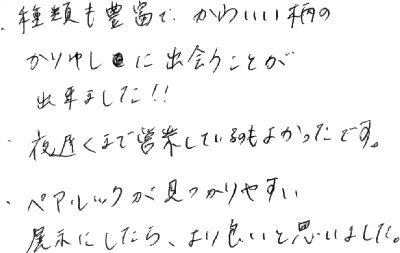 ・種類も豊富で、かわいい柄の
かりゆしに出会うことが
出来ました!!
・夜遅くまで営業しているのもよかったです。
・ペアルックが見つかりやすい
展示にしたら、より良いと思いました。